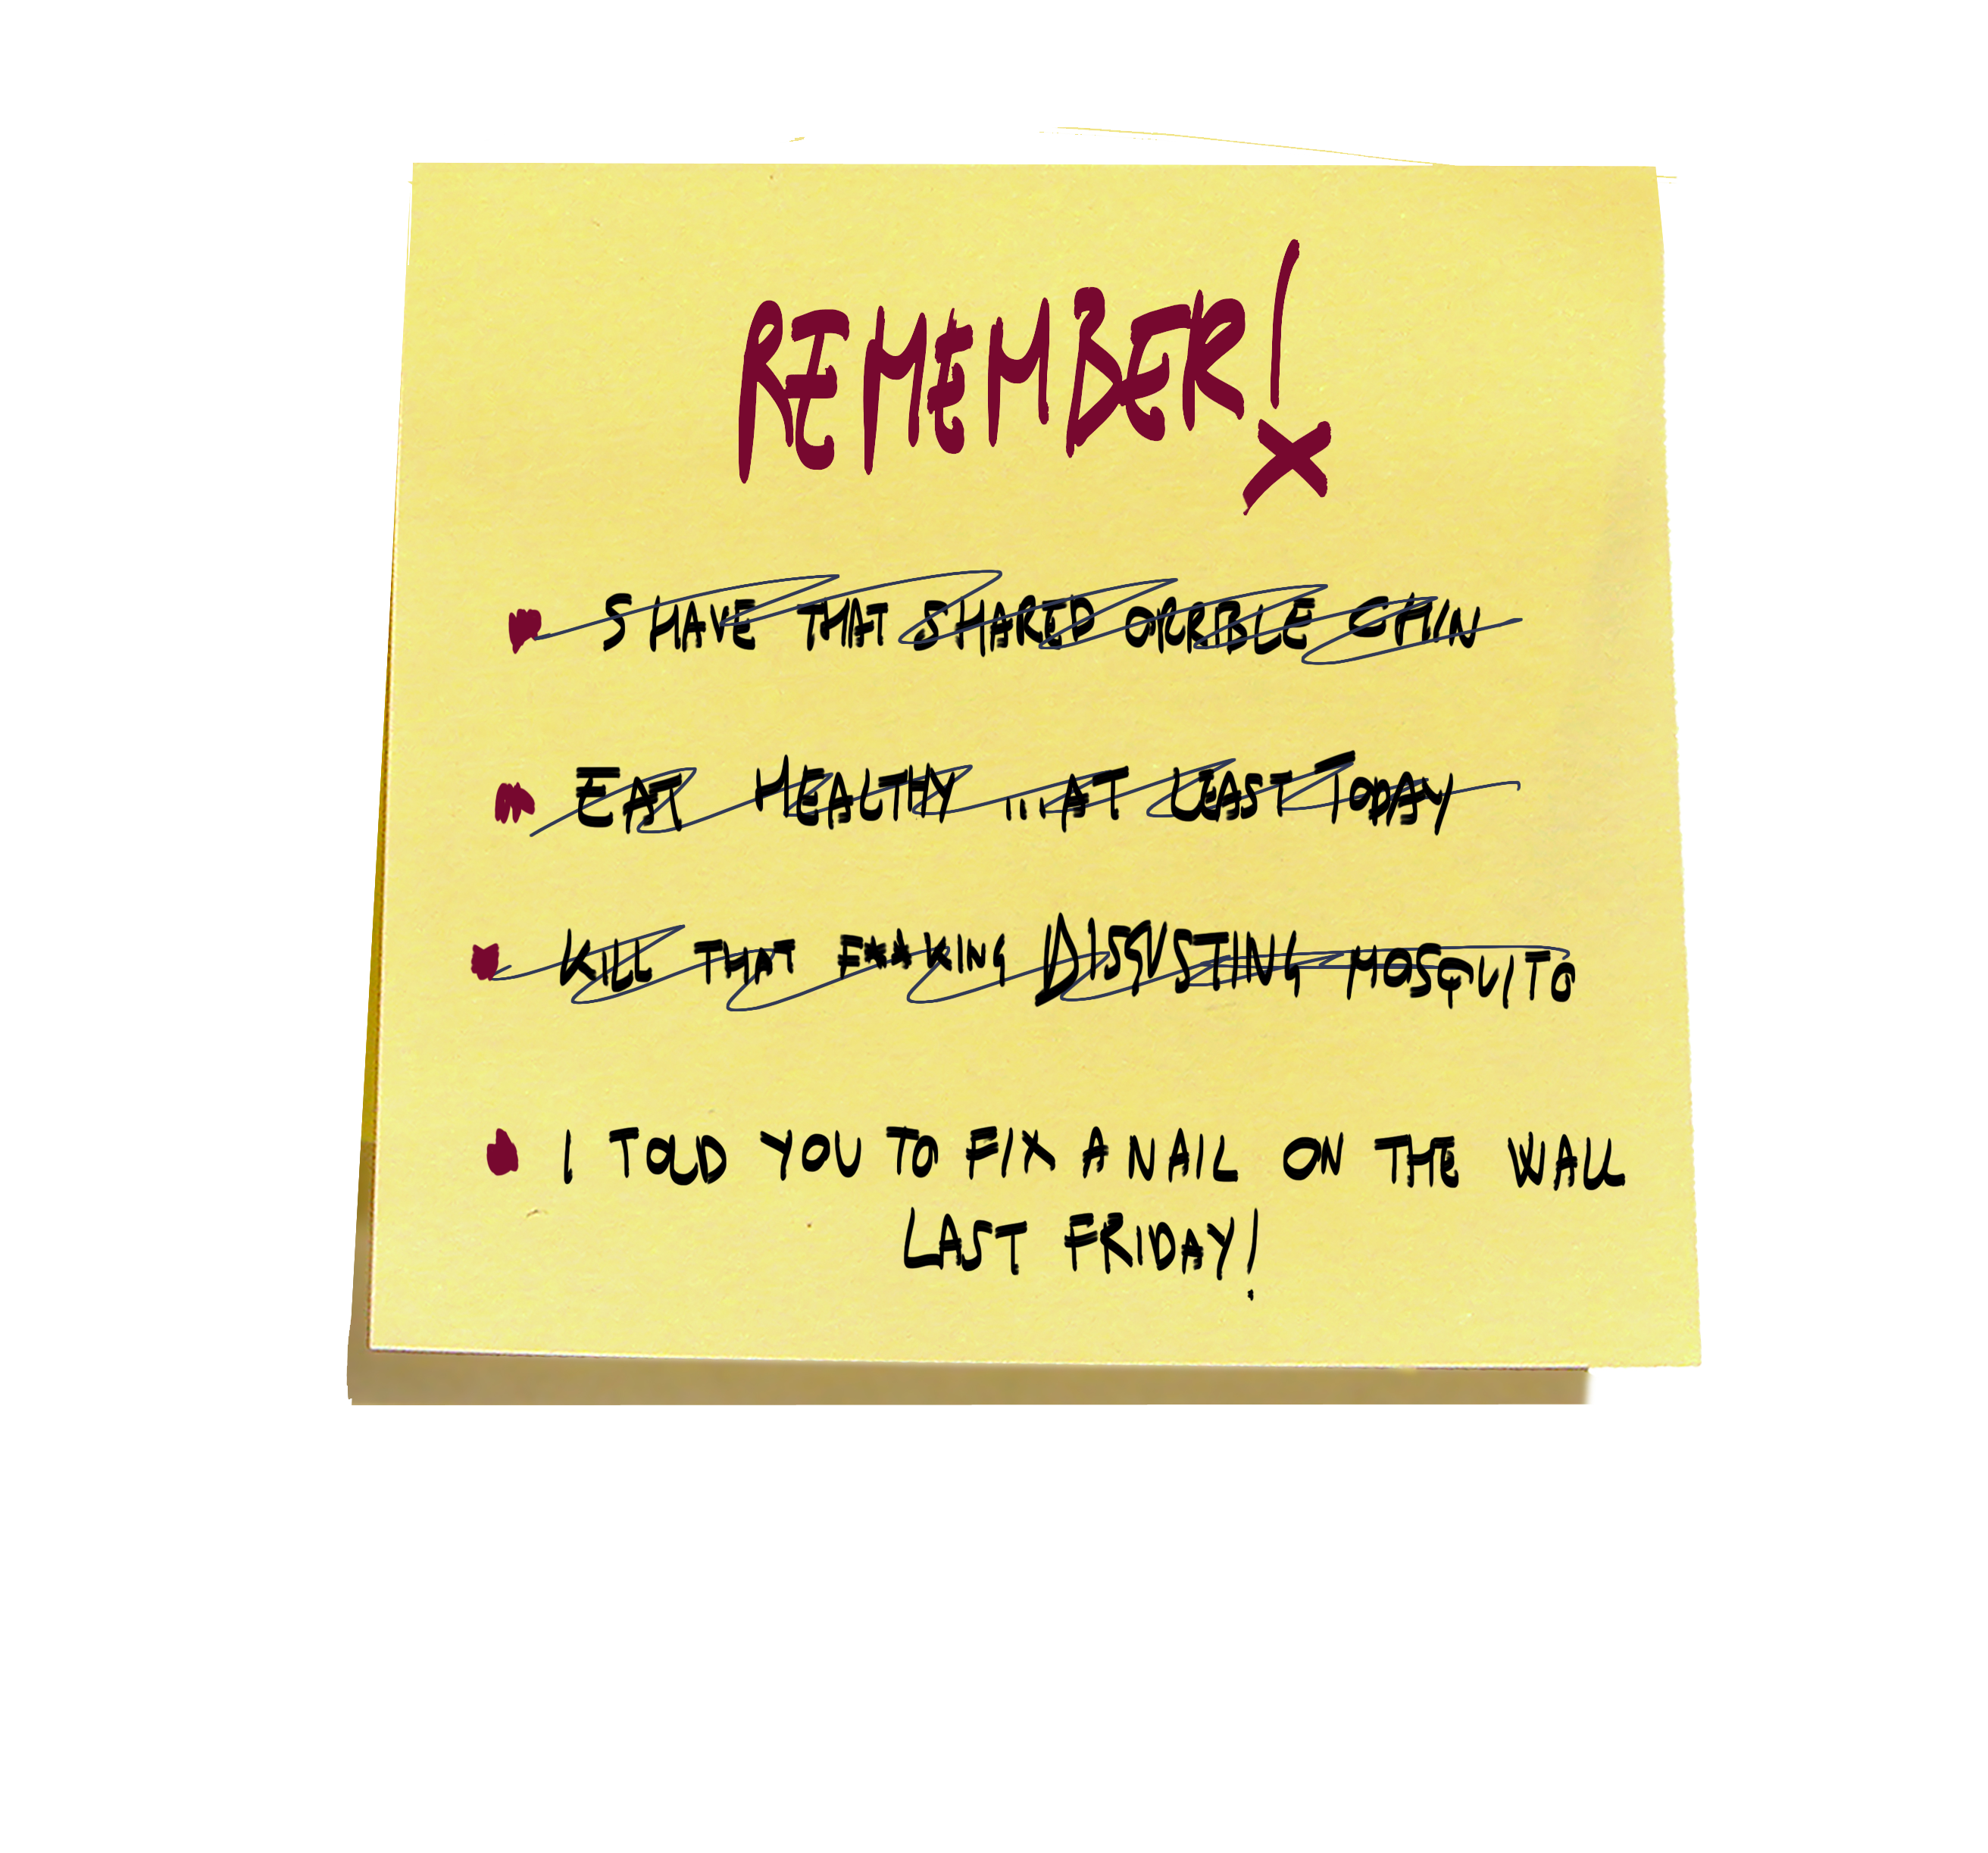 REMEMBER!
SHAVE THAT SHARED ORRIBLE CHIN
EAT HEALTHY ...AT LEAST TODAY
KILL THAT F**KING DISGUSTING MOSQUITO
I TOLD YOU TO FIX A NAIL ON THE WALL
LAST FRIDAY!